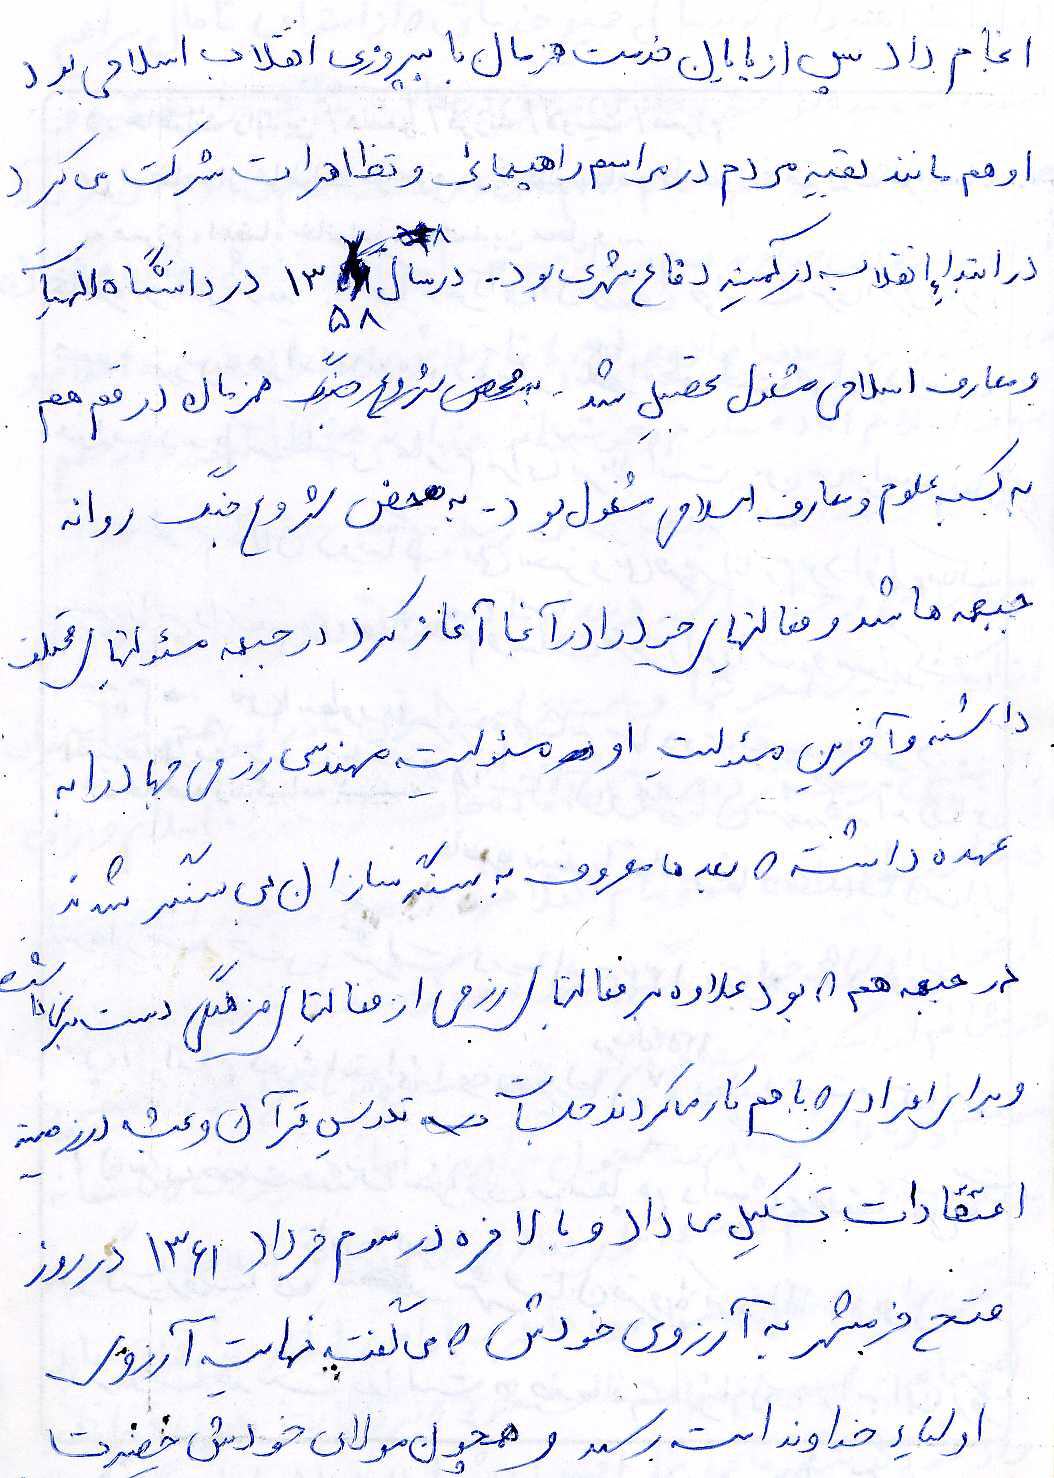 انجام داد پس از پایان خدمت همزمان با پیروزی انقلاب اسلامی بود
او هم مانند بقیه مردم در مراسم راهپیمائی و تظاهرات شرکت می کرد
در ابتدای انقلاب در کمیته دفاع شهری بود - در سال ۱۳۵۸ در دانشگاه الهیات
و معارف اسلامی مشغول تحصیل شد - همزمان در قم هم
به کسب علوم و معارف اسلامی مشغول بود - به محض شروع جنگ روانه
جبهه ها شد و فعالیتهای خود را در آنجا آغاز کرد در جبهه مسئولیتهای مختلف
داشته و آخرین مسئولیت او مسئولیت مهندسی رزمی جهاد را به
عهده داشت که بعدها معروف به سنگرسازان بی سنگر شدند
در جبهه هم که بود علاوه بر فعالیتهای رزمی از فعالیتهای فرهنگی دست برنداشت
و برای افرادی که با هم کار میکردند جلسات تدریس قرآن و بحث در زمینه
اعتقادات تشکیل می داد و بالاخره در سوم خرداد ۱۳۶۱ در روز
فتح خرمشهر به آرزوی خودش که می گفت نهایت آرزوی
اولیاء خداوند است رسید و همچون مولای خودش حضرت